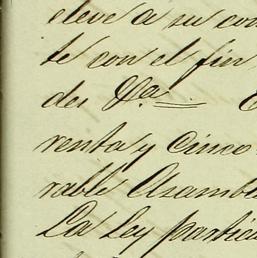 eleve a su con
te con el fin
des Va.
renta y Cinco
rable Asamble
La Ley particu